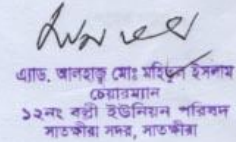 এ্যাড. আলহাজ্ব মোঃ ইসলাম
চেয়ারম্যান
১২নং বল্লী ইউনিয়ন পরিষদ
সাতক্ষীরা সদর, সাতক্ষীরা